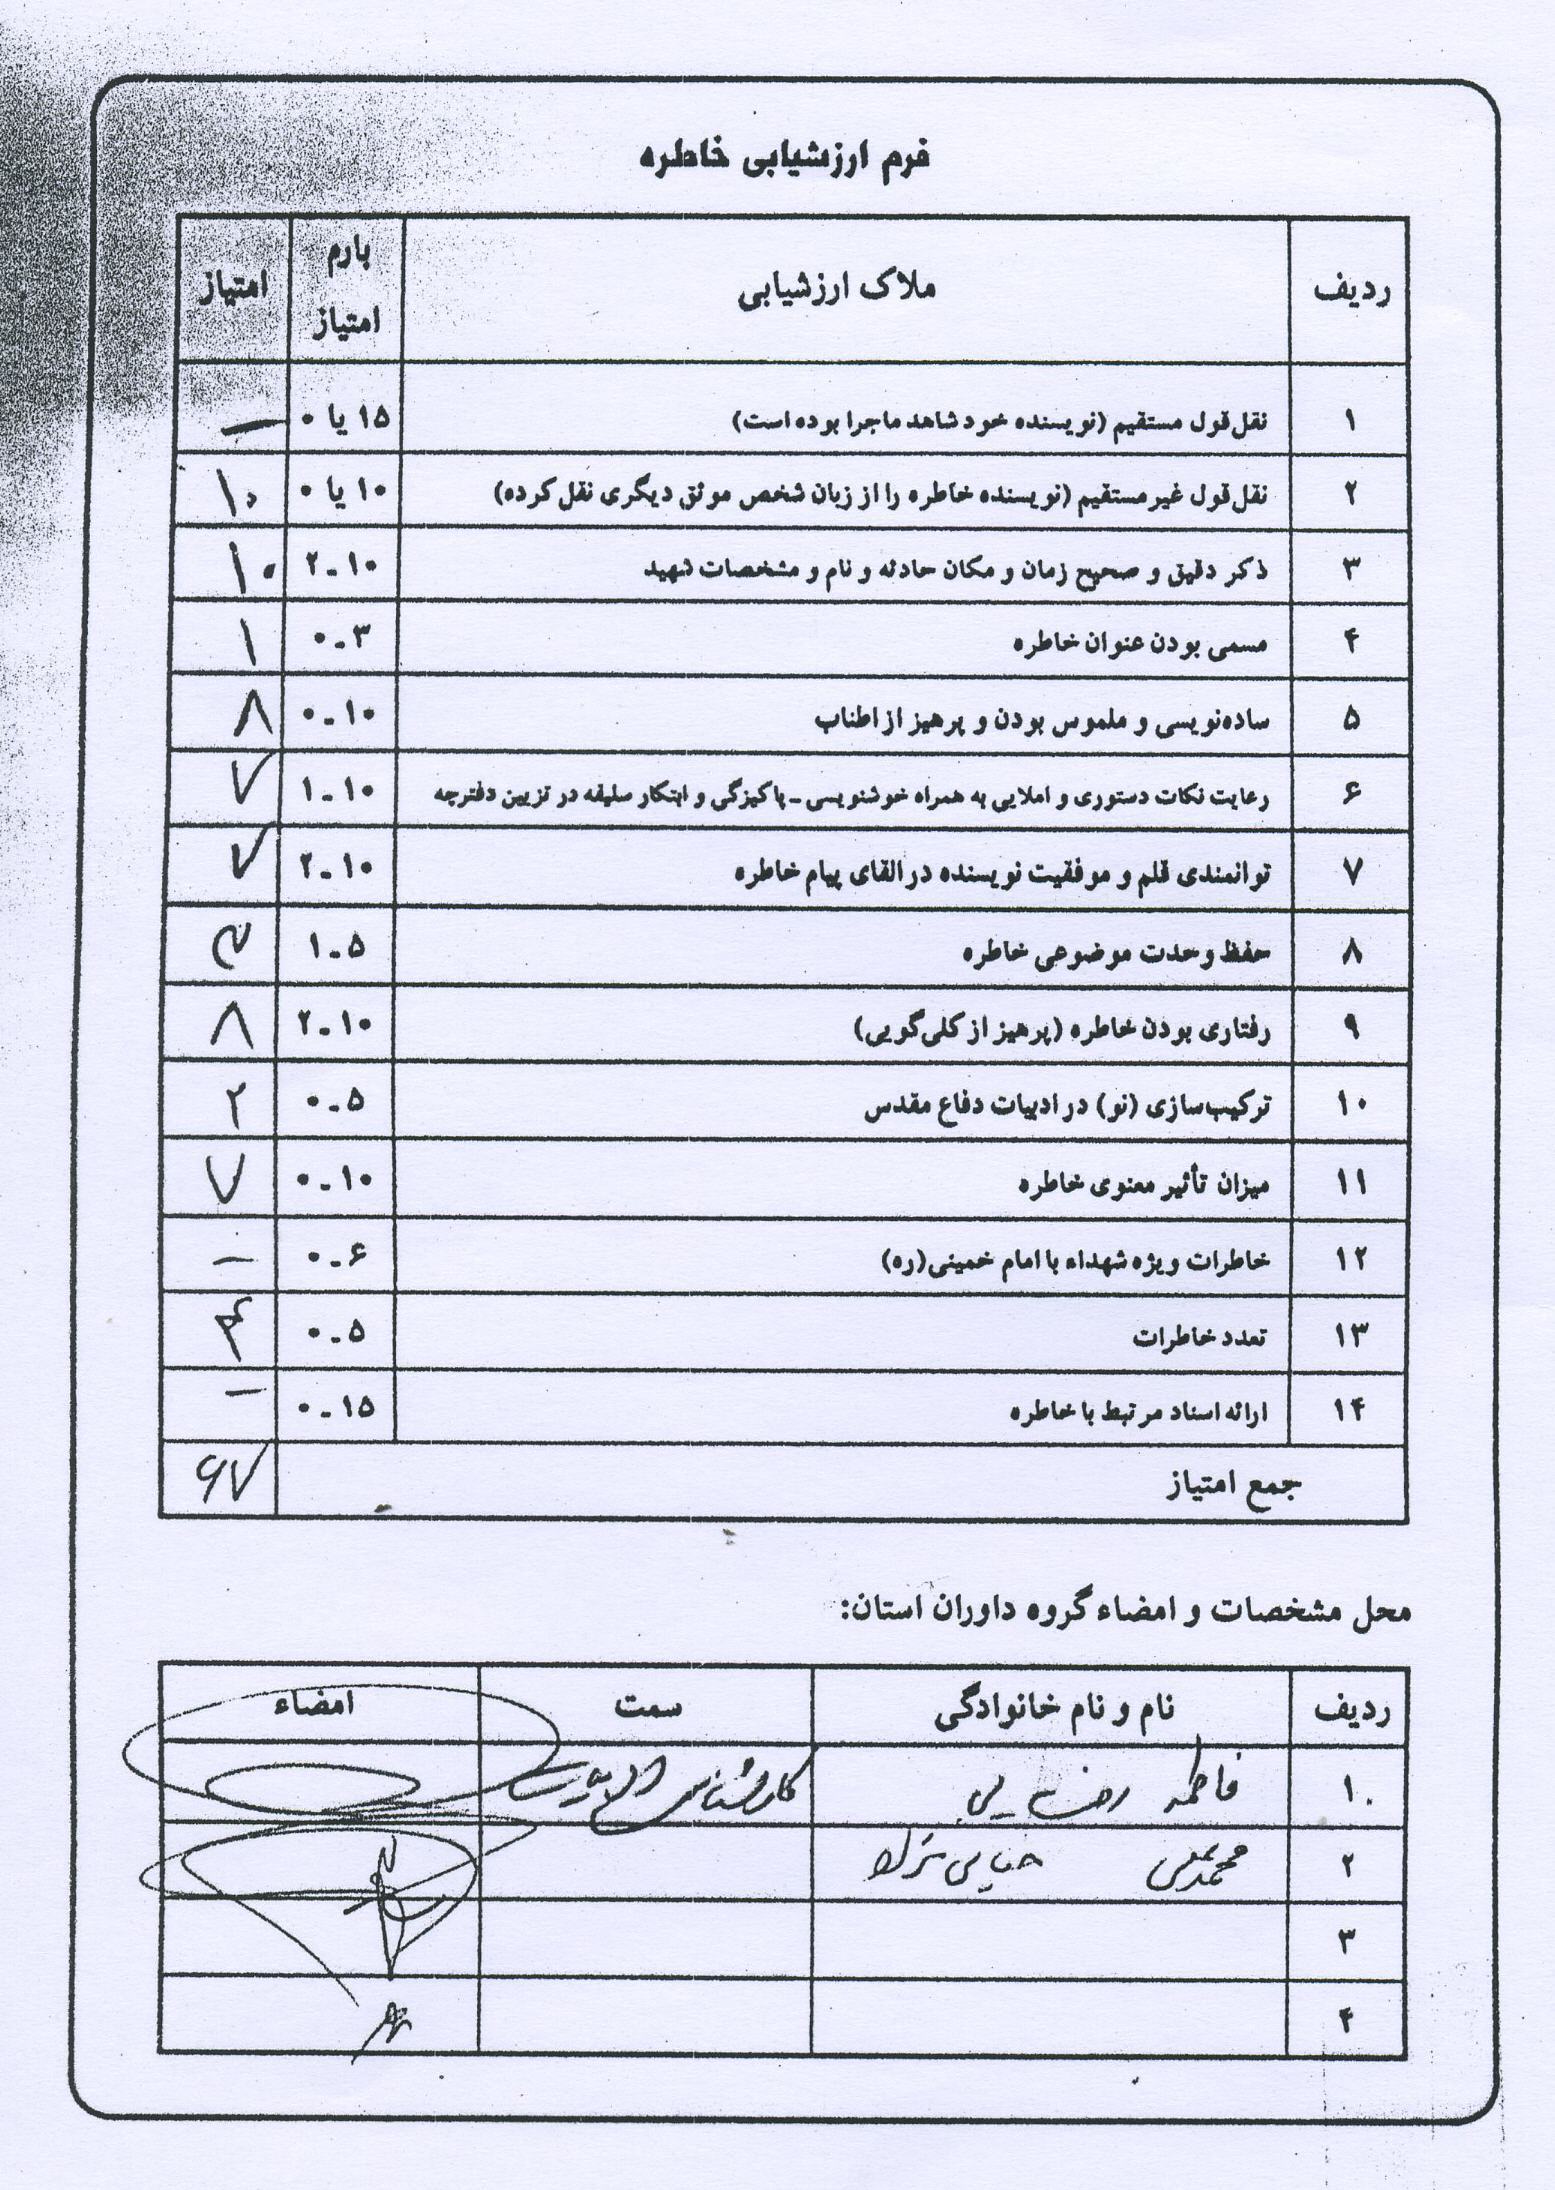 فرم ارزشیابی خاطره
ردیف ملاک ارزشیابی بارم امتیاز امتیاز
۱ نقل‌قول مستقیم (نویسنده خود شاهد ماجرا بوده است) ۱۵ یا ۰ —
۲ نقل‌قول غیرمستقیم (نویسنده خاطره را از زبان شخص موثق دیگری نقل کرده) ۱۰ یا ۰ ۱۰
۳ ذکر دقیق و صحیح زمان و مکان حادثه و نام و مشخصات شهید ۲-۱۰ ۱۰
۴ مسمی بودن عنوان خاطره ۰-۳ ۱
۵ ساده‌نویسی و ملموس بودن و پرهیز از اطناب ۰-۱۰ ۸
۶ رعایت نکات دستوری و املایی به همراه خوشنویسی - پاکیزگی و ابتکار سلیقه در تزیین دفترچه ۱-۱۰ ۷
۷ توانمندی قلم و موفقیت نویسنده در القای پیام خاطره ۲-۱۰ ۷
۸ حفظ وحدت موضوعی خاطره ۱-۵
۹ رفتاری بودن خاطره (پرهیز از کلی‌گویی) ۲-۱۰ ۸
۱۰ ترکیب‌سازی (نو) در ادبیات دفاع مقدس ۰-۵ ۲
۱۱ میزان تأثیر معنوی خاطره ۰-۱۰ ۷
۱۲ خاطرات ویژه شهداء با امام خمینی(ره) ۰-۶ —
۱۳ تعدد خاطرات ۰-۵
۱۴ ارائه اسناد مرتبط با خاطره ۰-۱۵ —
جمع امتیاز ۶۷
محل مشخصات و امضاء گروه داوران استان:
ردیف نام و نام خانوادگی سمت امضاء
۱. فاطمه رضایی کارشناس
۲ محمدعلی
۳
۴